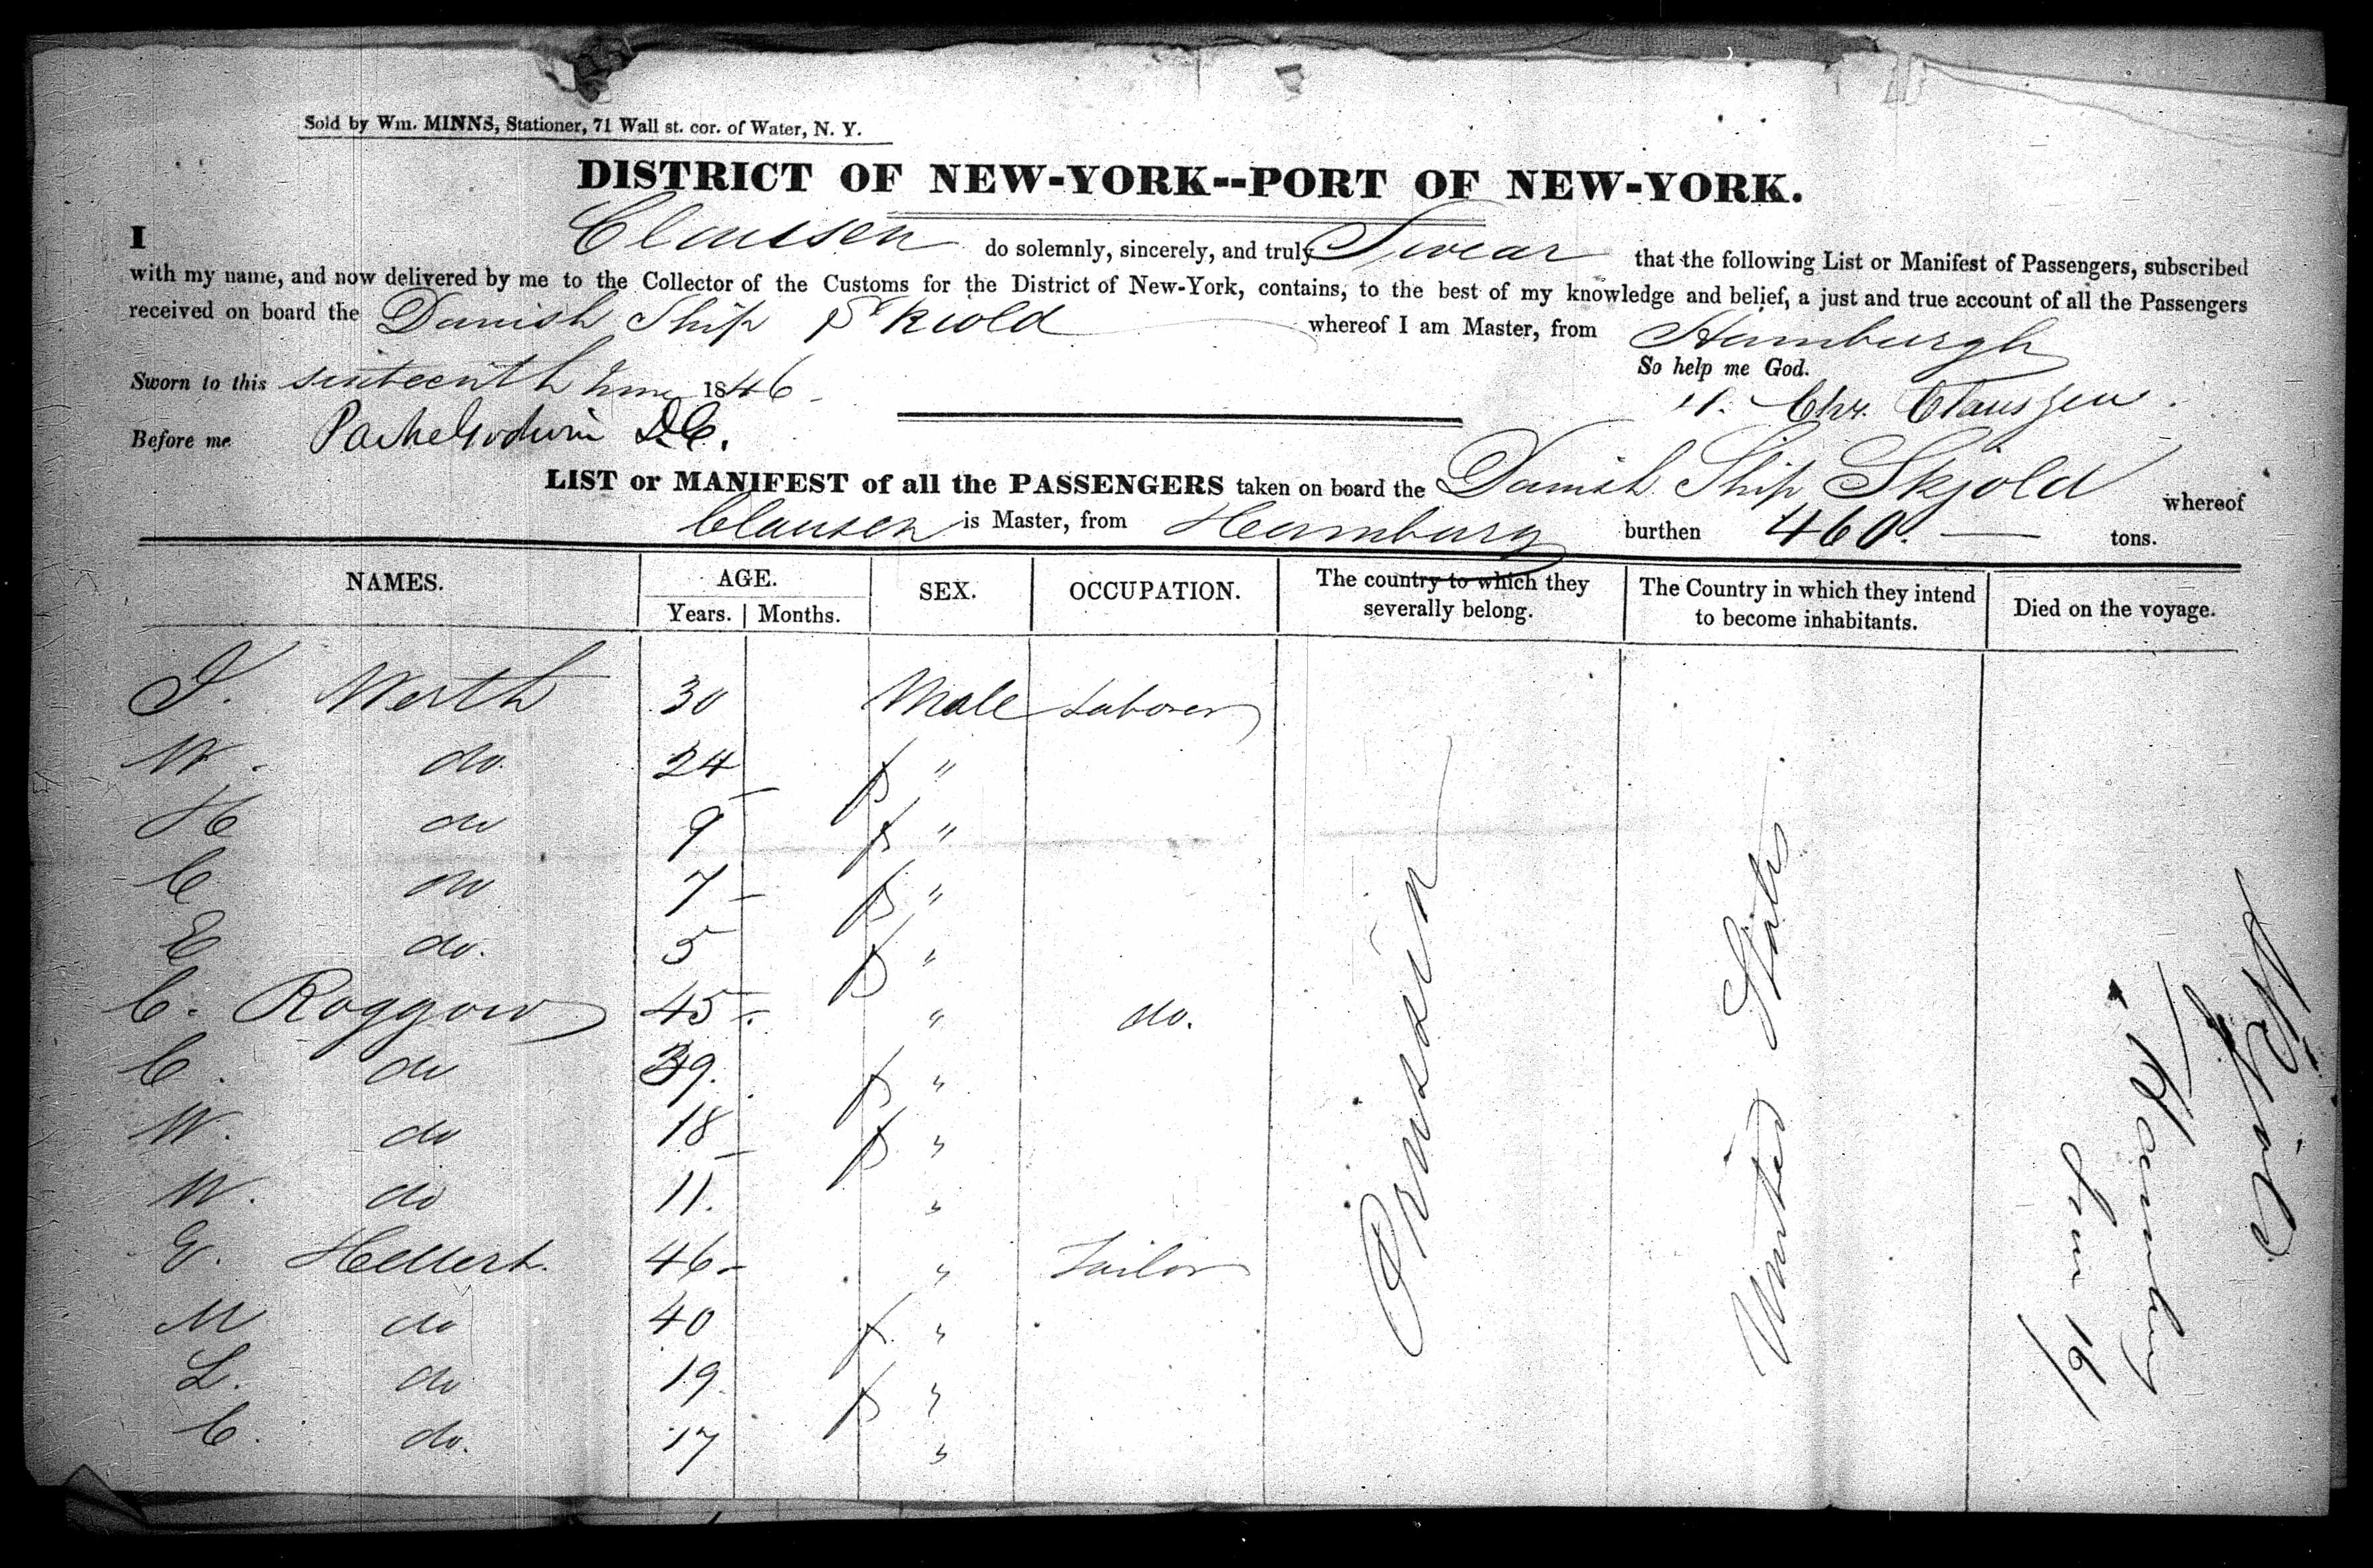 Sold by Wm. MINNS, Stationer, 71 Wall st. cor. of Water, N. Y.
DISTRICT OF NEW-YORK--PORT OF NEW-YORK.
I Claussen do solemnly, sincerely, and truly Swear that the following List or Manifest of Passengers, subscribed
with my name, and now delivered by me to the Collector of the Customs for the District of New-York, contains, to the best of my knowledge and belief, a just and true account of all the Passengers
received on board the Danish Ship Skiold whereof I am Master, from Hamburgh
So help me God.
Sworn to this sixteenth June 1846
Chr. Clauszen.
Before me Parke Godwin D.C.
LIST or MANIFEST of all the PASSENGERS taken on board the Danish Ship Skjold whereof
Clausen is Master, from Hamburg burthen 460. — tons.
NAMES. AGE. Years. Months. SEX. OCCUPATION. The country to which they severally belong. The Country in which they intend to become inhabitants. Died on the voyage.
J. Werth 30 Male Laborer
W. do. 24 f "
H do 9 f "
C do 7 f "
E do. 5 f "
C. Roggow 45 " do.
C. do 39. f "
W. do 18 f "
W. do 11. "
E. Hellert. 46 " Tailor
M do 40 f "
L. do 19. f "
C. do. 17 "
Prussian
United States
Skiold
Hamburg
June 16/